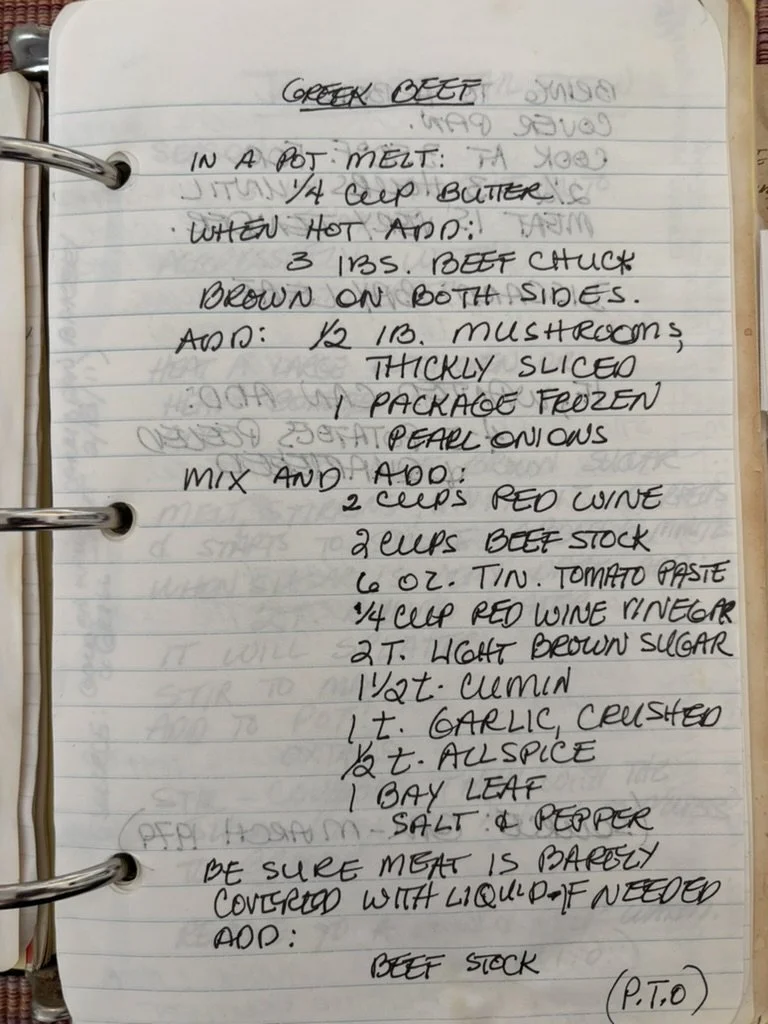 GREEK BEEF
IN A POT MELT:
1/4 CUP BUTTER
WHEN HOT ADD:
3 lBS. BEEF CHUCK
BROWN ON BOTH SIDES.
ADD: 1/2 lB. MUSHROOMS,
THICKLY SLICED
1 PACKAGE FROZEN
PEARL ONIONS
MIX AND ADD:
2 CUPS RED WINE
2 CUPS BEEF STOCK
6 OZ. TIN. TOMATO PASTE
1/4 CUP RED WINE VINEGAR
2 T. LIGHT BROWN SUGAR
1 1/2 t. CUMIN
1 t. GARLIC, CRUSHED
1/2 t. ALLSPICE
1 BAY LEAF
SALT & PEPPER
BE SURE MEAT IS BARELY
COVERED WITH LIQUID-IF NEEDED
ADD:
BEEF STOCK
(P.T.O)